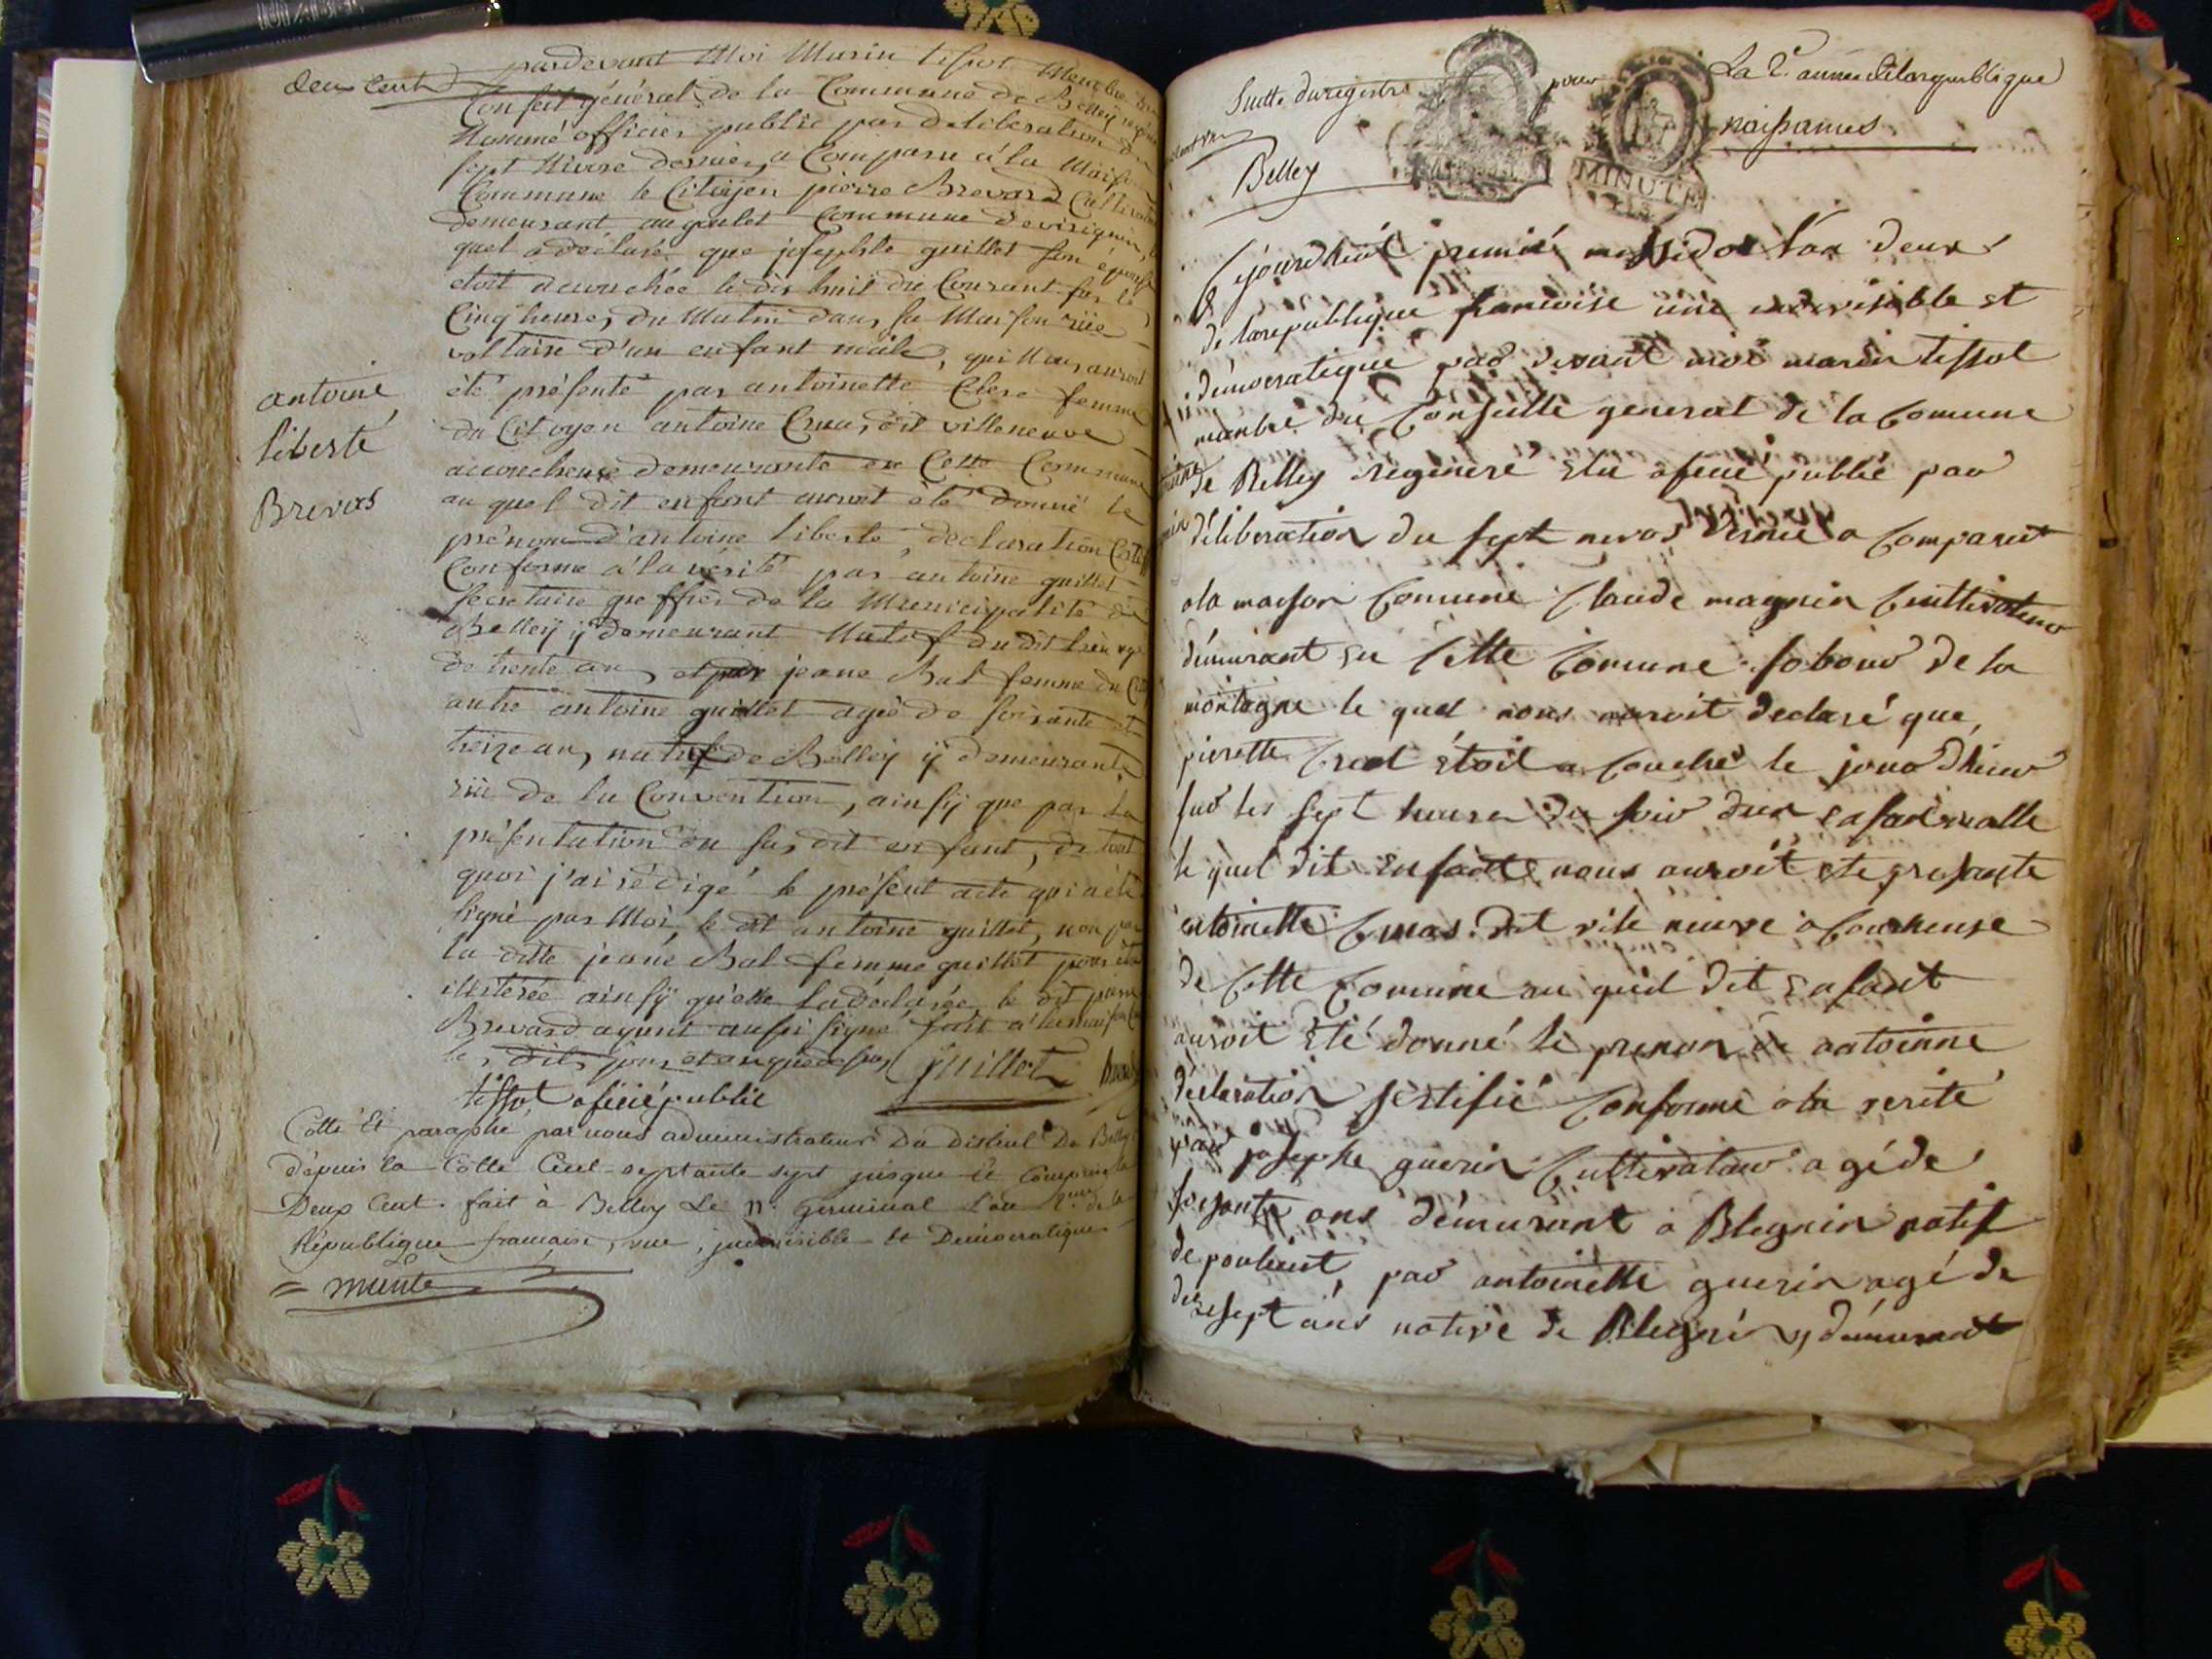 deux cent
pardevant Moi Marin tissot Membre du
Conseil général de la Commune de Belley
Nommé officier public par deliberation du
sept Nivose dernier, a Comparu à la Maison
Commune le Citoyen pierre Brevard Cultivateur
demeurant au Commune de virignin,
quel a déclaré que josephte guillet son épouse
etoit acouchée le dix huit du Courant sur les
Cinq heures du Matin dans sa Maison rüe
voltaire d'un enfant mâle, qui Nous auroit
été présenté par antoinette Clerc femme
du Citoyen antoine Cruas dit villeneuve
acoucheuse demeurante en Cette Commune
au quel dit enfant auroit été donné le
prénom d'antoine liberté, declaration
Conforme à la vérité par antoine guillet
secretaire greffier de la Municipalité de
Belley ÿ demeurant Natif du dit lieu
de trente ans, et par jeane Bal femme du
autre antoine guillet agée de soixante et
treize ans, native de Belley ÿ demeurante
rüe de la Convention, ainsÿ que par la
présentation du susdit enfant, de tout
quoi j'ai rédigé le présent acte qui a été
signé par Moi, le dit antoine guillet, non par
la ditte jeane Bal femme guillet pour être
illitérée ainsÿ qu'elle l'a déclarée le dit pierre
Brevard ayant aussi signé fait à la maison
les dits jour et an que dessus Guillet
tissot oficié public
antoine
liberté
Brevard
Cotté Et paraphé par nous administrateur Du district De Belley
dépuis la Cotte Cent-septante sept jusque et Comprise la
Deux Cent. fait à Belley Le germinal L'an 2.e de la
République française, une, indivisible Et Démocratique
Suitte du registre pour La 2.e année de la republique
naissances
Belley
MINUTE
Cejourdhuit premié messidor l'an deux
de la republique francoise une indivisible et
démocratique par devant moi marin tissot
membre du Conseille general de la Comune
de Belley regeneré elu oficié publié par
déliberation du sept nivos dernié a Comparut
a la maison Comune Claude magnin Cultivateur
démurant en Cette Comune fobour de la
montagne le quel nous auroit declaré que
pierrette étoit a Couché le jour dhier
sur les sept heures du soir d'un enfant malle
le quel dit enfant nous auroit ete presante
antoinette Cruas dit vile neuve a Coucheuse
de Cette Comune au quel dit enfant
auroit été donné le prenon de antoinne
déclaration sertifié Conforme a la verité
par josephe guerin Cultivataur agé de
soisante ans démurant a Blegnin natif
de par antoinette guerin agé de
disesept ans native de Blegnin y démurant